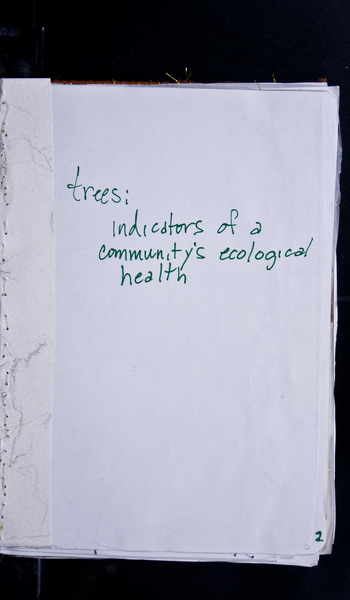 trees:
indicators of a
community's ecological
health
2